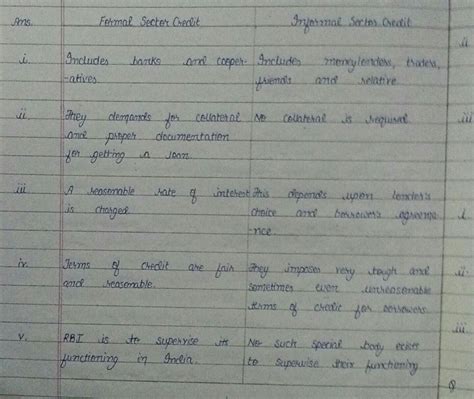 Ans. Formal Sector Credit Informal Sector Credit
ii
i. Includes banks and cooper- Includes moneylenders, traders,
-atives. friends and relative
ii. They demands for collateral No collateral is required. iii
and proper documentation
for getting a loan.
iii A reasonable rate of interest This depends upon lender's
is charged. choice and borrower's agreeme i
-nce
iv. Terms of credit are fair They imposes very tough and ii.
and reasonable. sometimes even unreasonable
terms of credit for borrowers.
iii.
v. RBI is to supervise its No such special body exist
functioning in India. to supervise their functioning
Q